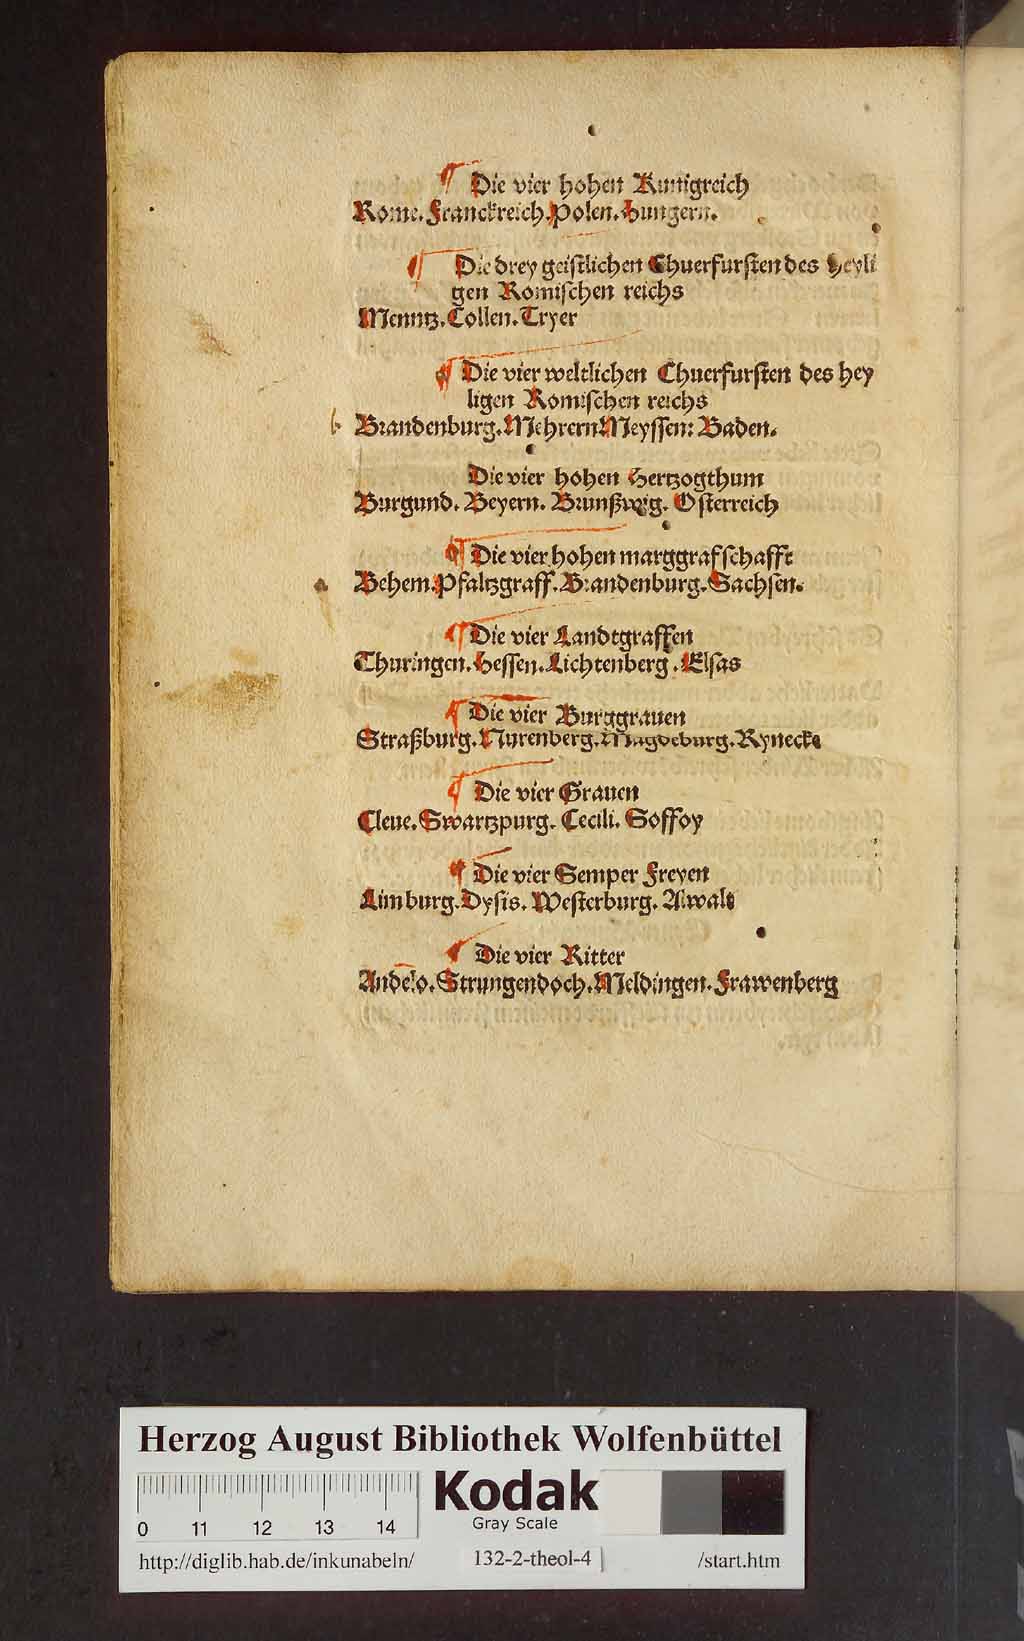 Die vier hohen Kunigreich
Rome. Franckreich. Polen. Hungern.
Die drey geistlichen Chuerfursten des Heyli
gen Romischen reichs
Menntz. Collen. Tryer
Die vier weltlichen Chuerfursten des hey
ligen Romischen reichs
Brandenburg. Mehrern Meyssen: Baden.
Die vier hohen Hertzogthum
Burgund. Beyern. Brunßwig. Osterreich
Die vier hohen marggrafschafft
Behem. Pfaltzgraff. Brandenburg. Sachsen.
Die vier Landtgraffen
Thuringen. Hessen. Lichtenberg. Elsas
Die vier Burggrauen
Straßburg. Nurenberg. Magdeburg. Rynecke
Die vier Grauen
Cleue. Swartzpurg. Cecili. Soffoy
Die vier Semper Freyen
Limburg. Dysis. Westerburg. Alwald
Die vier Ritter
Andelo. Strungendoch. Meldingen. Frawenberg
Herzog August Bibliothek Wolfenbüttel
0 11 12 13 14
Kodak
Gray Scale
http://diglib.hab.de/inkunabeln/ 132-2-theol-4 /start.htm